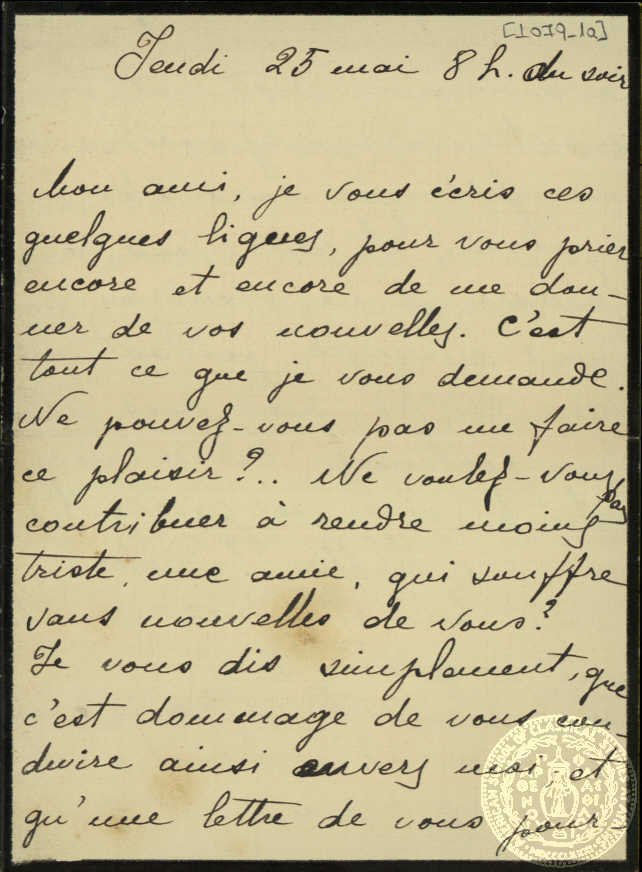 [1079-1a]
Jeudi 25 mai 8 h. du soir
Mon ami, je vous écris ces
quelques lignes, pour vous prier
encore et encore de me don-
ner de vos nouvelles. C'est
tout ce que je vous demande.
Ne pouvez-vous pas me faire
ce plaisir?.. Ne voulez-vous
pas
contribuer à rendre moins
triste, une amie, qui souffre
sans nouvelles de vous?
Je vous dis simplement, que
c'est dommage de vous con-
duire ainsi envers moi, et
qu'une lettre de vous pour-